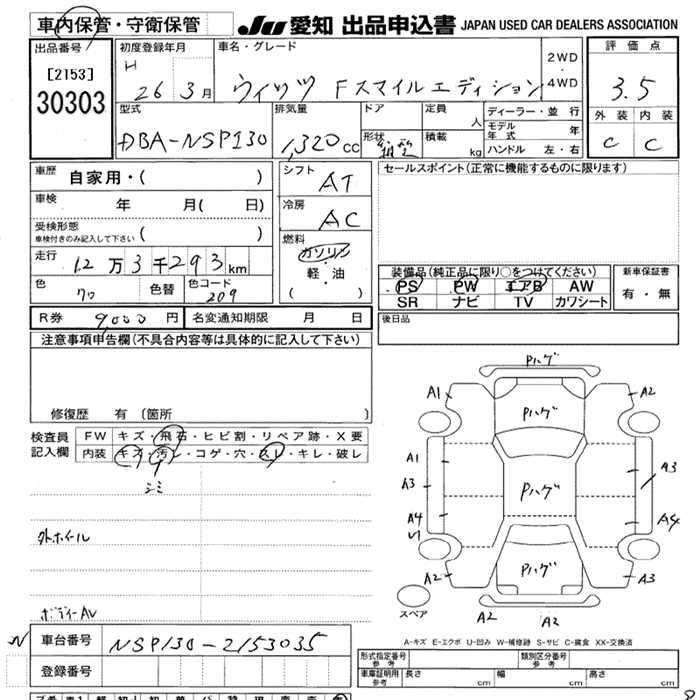 車内保管・守衛保管
JU 愛知 出品申込書 JAPAN USED CAR DEALERS ASSOCIATION
出品番号
[2153]
30303
初度登録年月
H 26 3月
車名・グレード
ヴィッツ Fスマイルエディション
2WD
4WD
評価点
3.5
外装 内装
C C
型式
DBA-NSP130
排気量
1,320cc
ドア
形状
定員
人
積載
kg
ディーラー・並行
モデル年式 年
ハンドル 左・右
車歴
自家用・( )
車検
年 月( 日)
受検形態
車検付きのみ記入して下さい ( )
走行
12万3千293km
色
クロ
色替
色コード
209
シフト
AT
冷房
AC
燃料
ガソリン
軽・油
( )
セールスポイント(正常に機能するものに限ります)
装備品(純正品に限り○をつけてください)
PS PW エアB AW
SR ナビ TV カワシート
新車保証書
有・無
R券 9,000円 名変通知期限 月 日
後日品
注意事項申告欄(不具合内容等は具体的に記入して下さい)
修復歴 有 〔箇所 〕
検査員
記入欄
FW キズ・飛石・ヒビ割・リペア跡・X要
内装 キズ・汚レ・コゲ・穴・スレ・キレ・破レ
シミ
外ホイール
ボディーAU
Pハゲ
A1 A2
Pハゲ
A1 A3
A3 Pハゲ
A4 A4
U1
Pハゲ
A2 A3
スペア
A2 A2
A-キズ E-エクボ U-凹み W-補修跡 S-サビ C-腐食 XX-交換済
N
車台番号 NSP130-2153035
登録番号
形式指定番号
参考
類別区分番号
参考
車庫証明用
参考
長さ cm 幅 cm 高さ cm